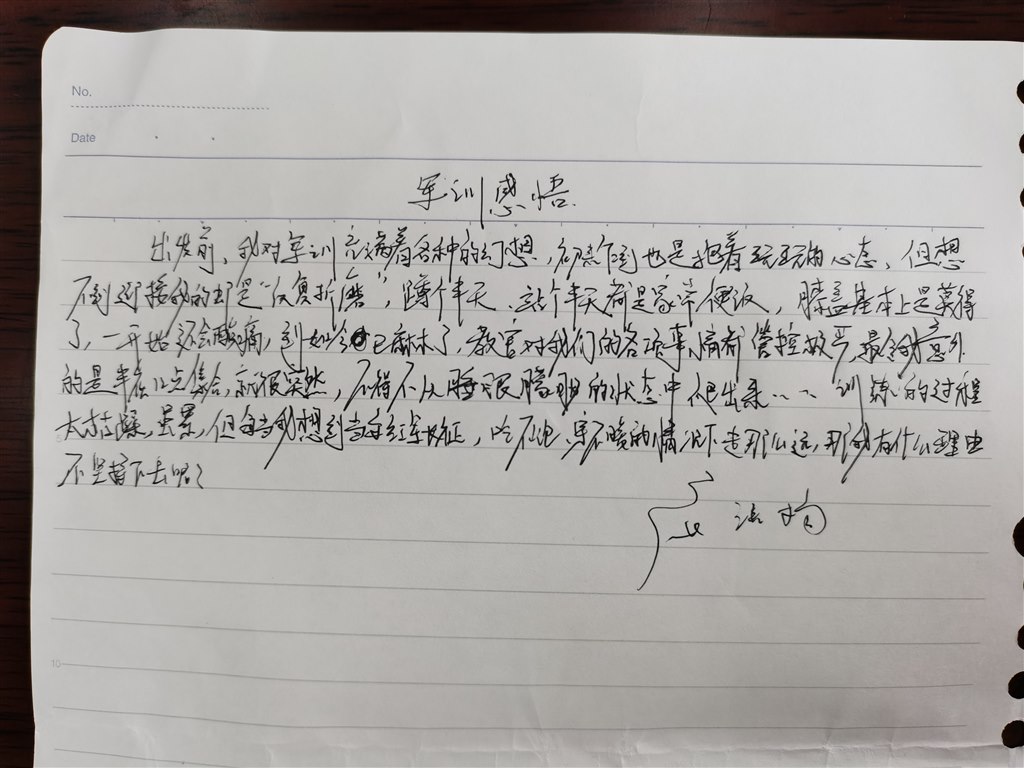 No.
Date
军训感悟
出发前,我对军训充满着各种的幻想,都也是抱着玩玩的心态,但想
不到迎接我的却是“反复折磨”,蹲个半天、站个半天都是家常便饭,膝盖基本上是蹲得
了,一开始还会酸痛,到如今已麻木了,教官对我们的各项事情都管控极严,最令我意外
的是半夜12点集合,都很突然,不得不从睡眼朦胧的状态中爬出来……训练的过程
太枯燥,虽累,但每当我想到当年红军长征,吃不饱、穿不暖的情况下走那么远,那我有什么理由
不坚持下去呢?
10